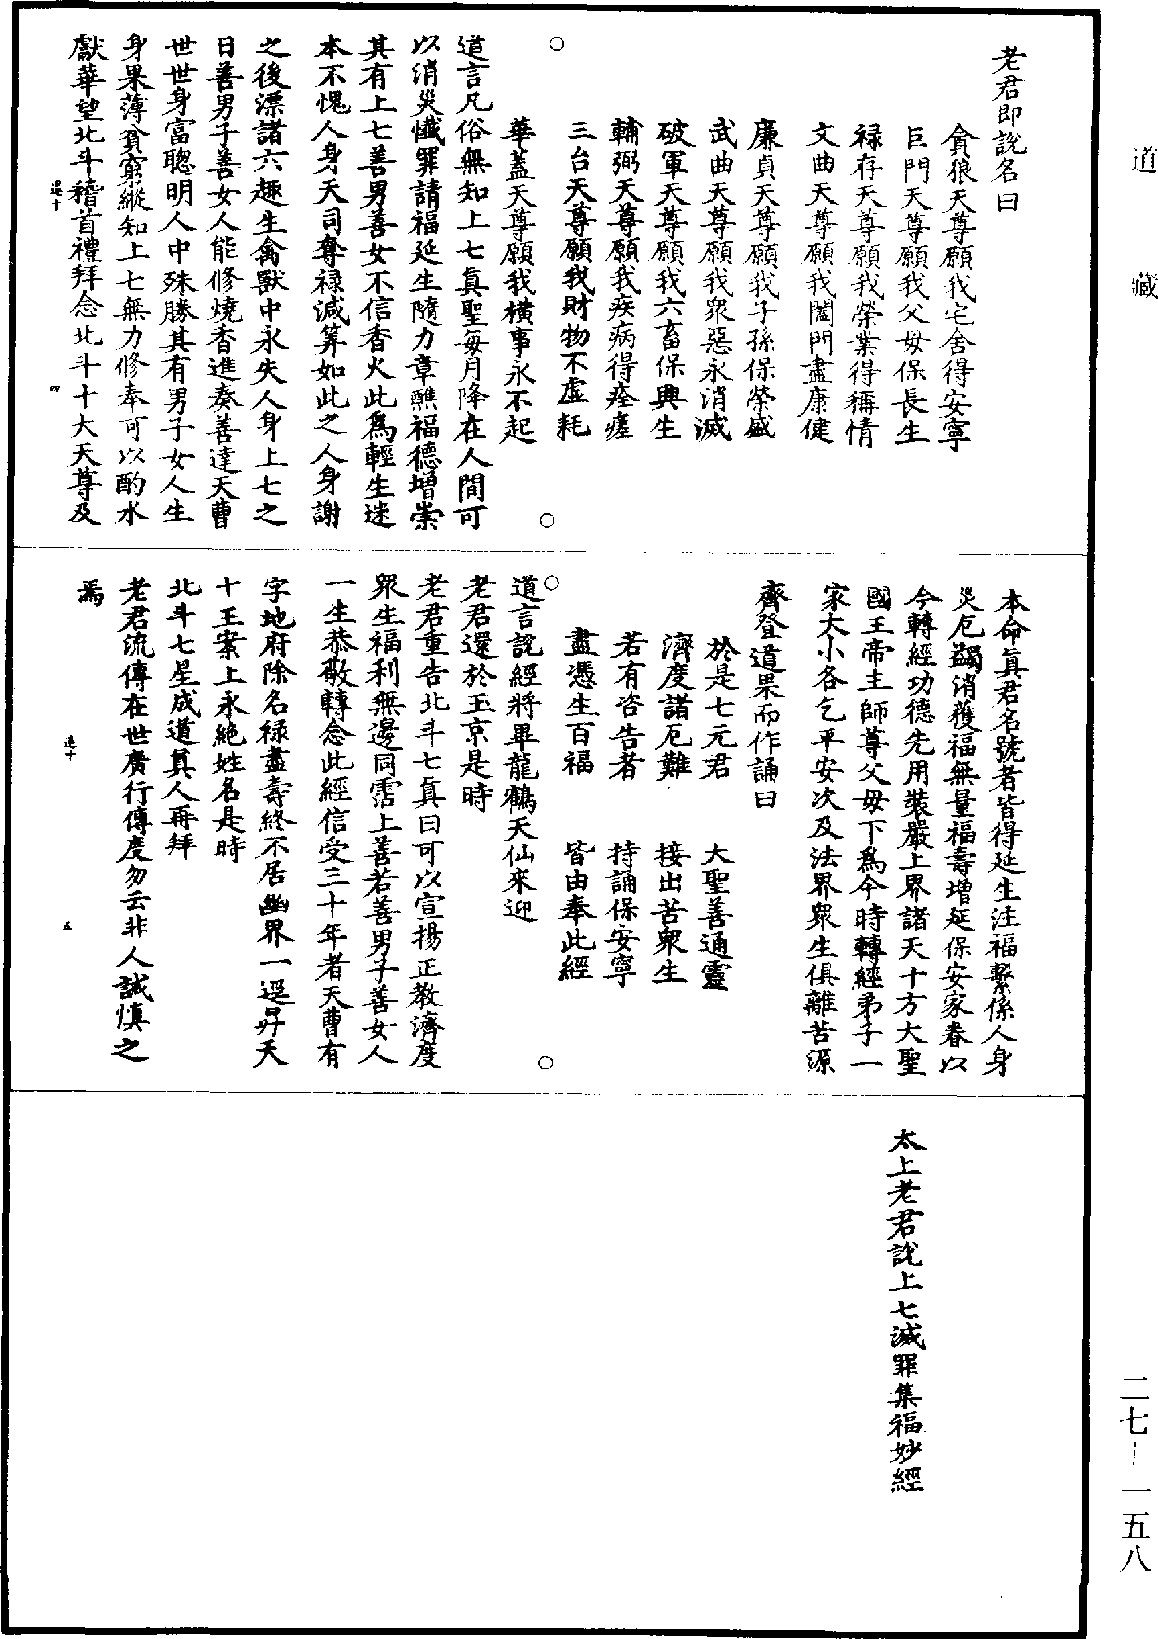 道藏
老君即說名曰
貪狼天尊願我宅舍得安寧
巨門天尊願我父母保長生
祿存天尊願我榮業得稱情
文曲天尊願我闔門盡康健
廉貞天尊願我子孫保榮盛
武曲天尊願我衆惡永消滅
破軍天尊願我六畜保興生
輔弼天尊願我疾病得痊瘥
三台天尊願我財物不虛耗
華蓋天尊願我橫事永不起
道言凡俗無知上七真聖每月降在人間可
以消災懺罪請福延生隨力章醮福德增崇
其有上七善男善女不信香火此爲輕生迷
本不愧人身天司奪祿減筭如此之人身謝
之後漂諸六趣生禽獸中永失人身上七之
日善男子善女人能修燒香進奏善達天曹
世世身富聰明人中殊勝其有男子女人生
身果薄貧窮縱知上七無力修奉可以酌水
獻華望北斗稽首禮拜念北斗十大天尊及
四
本命真君名號者皆得延生注福繫係人身
災厄蠲消獲福無量福壽增延保安家眷以
今轉經功德先用裝嚴上界諸天十方大聖
國王帝主師尊父母下爲今時轉經弟子一
家大小各乞平安次及法界衆生俱離苦源
齊登道果而作誦曰
於是七元君　大聖善通靈
濟度諸厄難　接出苦衆生
若有咨告者　持誦保安寧
盡憑生百福　皆由奉此經
道言說經將畢龍鶴天仙來迎
老君還於玉京是時
老君重告北斗七真曰可以宣揚正教濟度
衆生福利無邊同霑上善若善男子善女人
一生恭敬轉念此經信受三十年者天曹有
字地府除名祿盡壽終不居幽界一逕昇天
十王案上永絶姓名是時
北斗七星成道真人再拜
老君流傳在世廣行傳度勿云非人誠慎之
焉
五
太上老君說上七滅罪集福妙經
二七－一五八